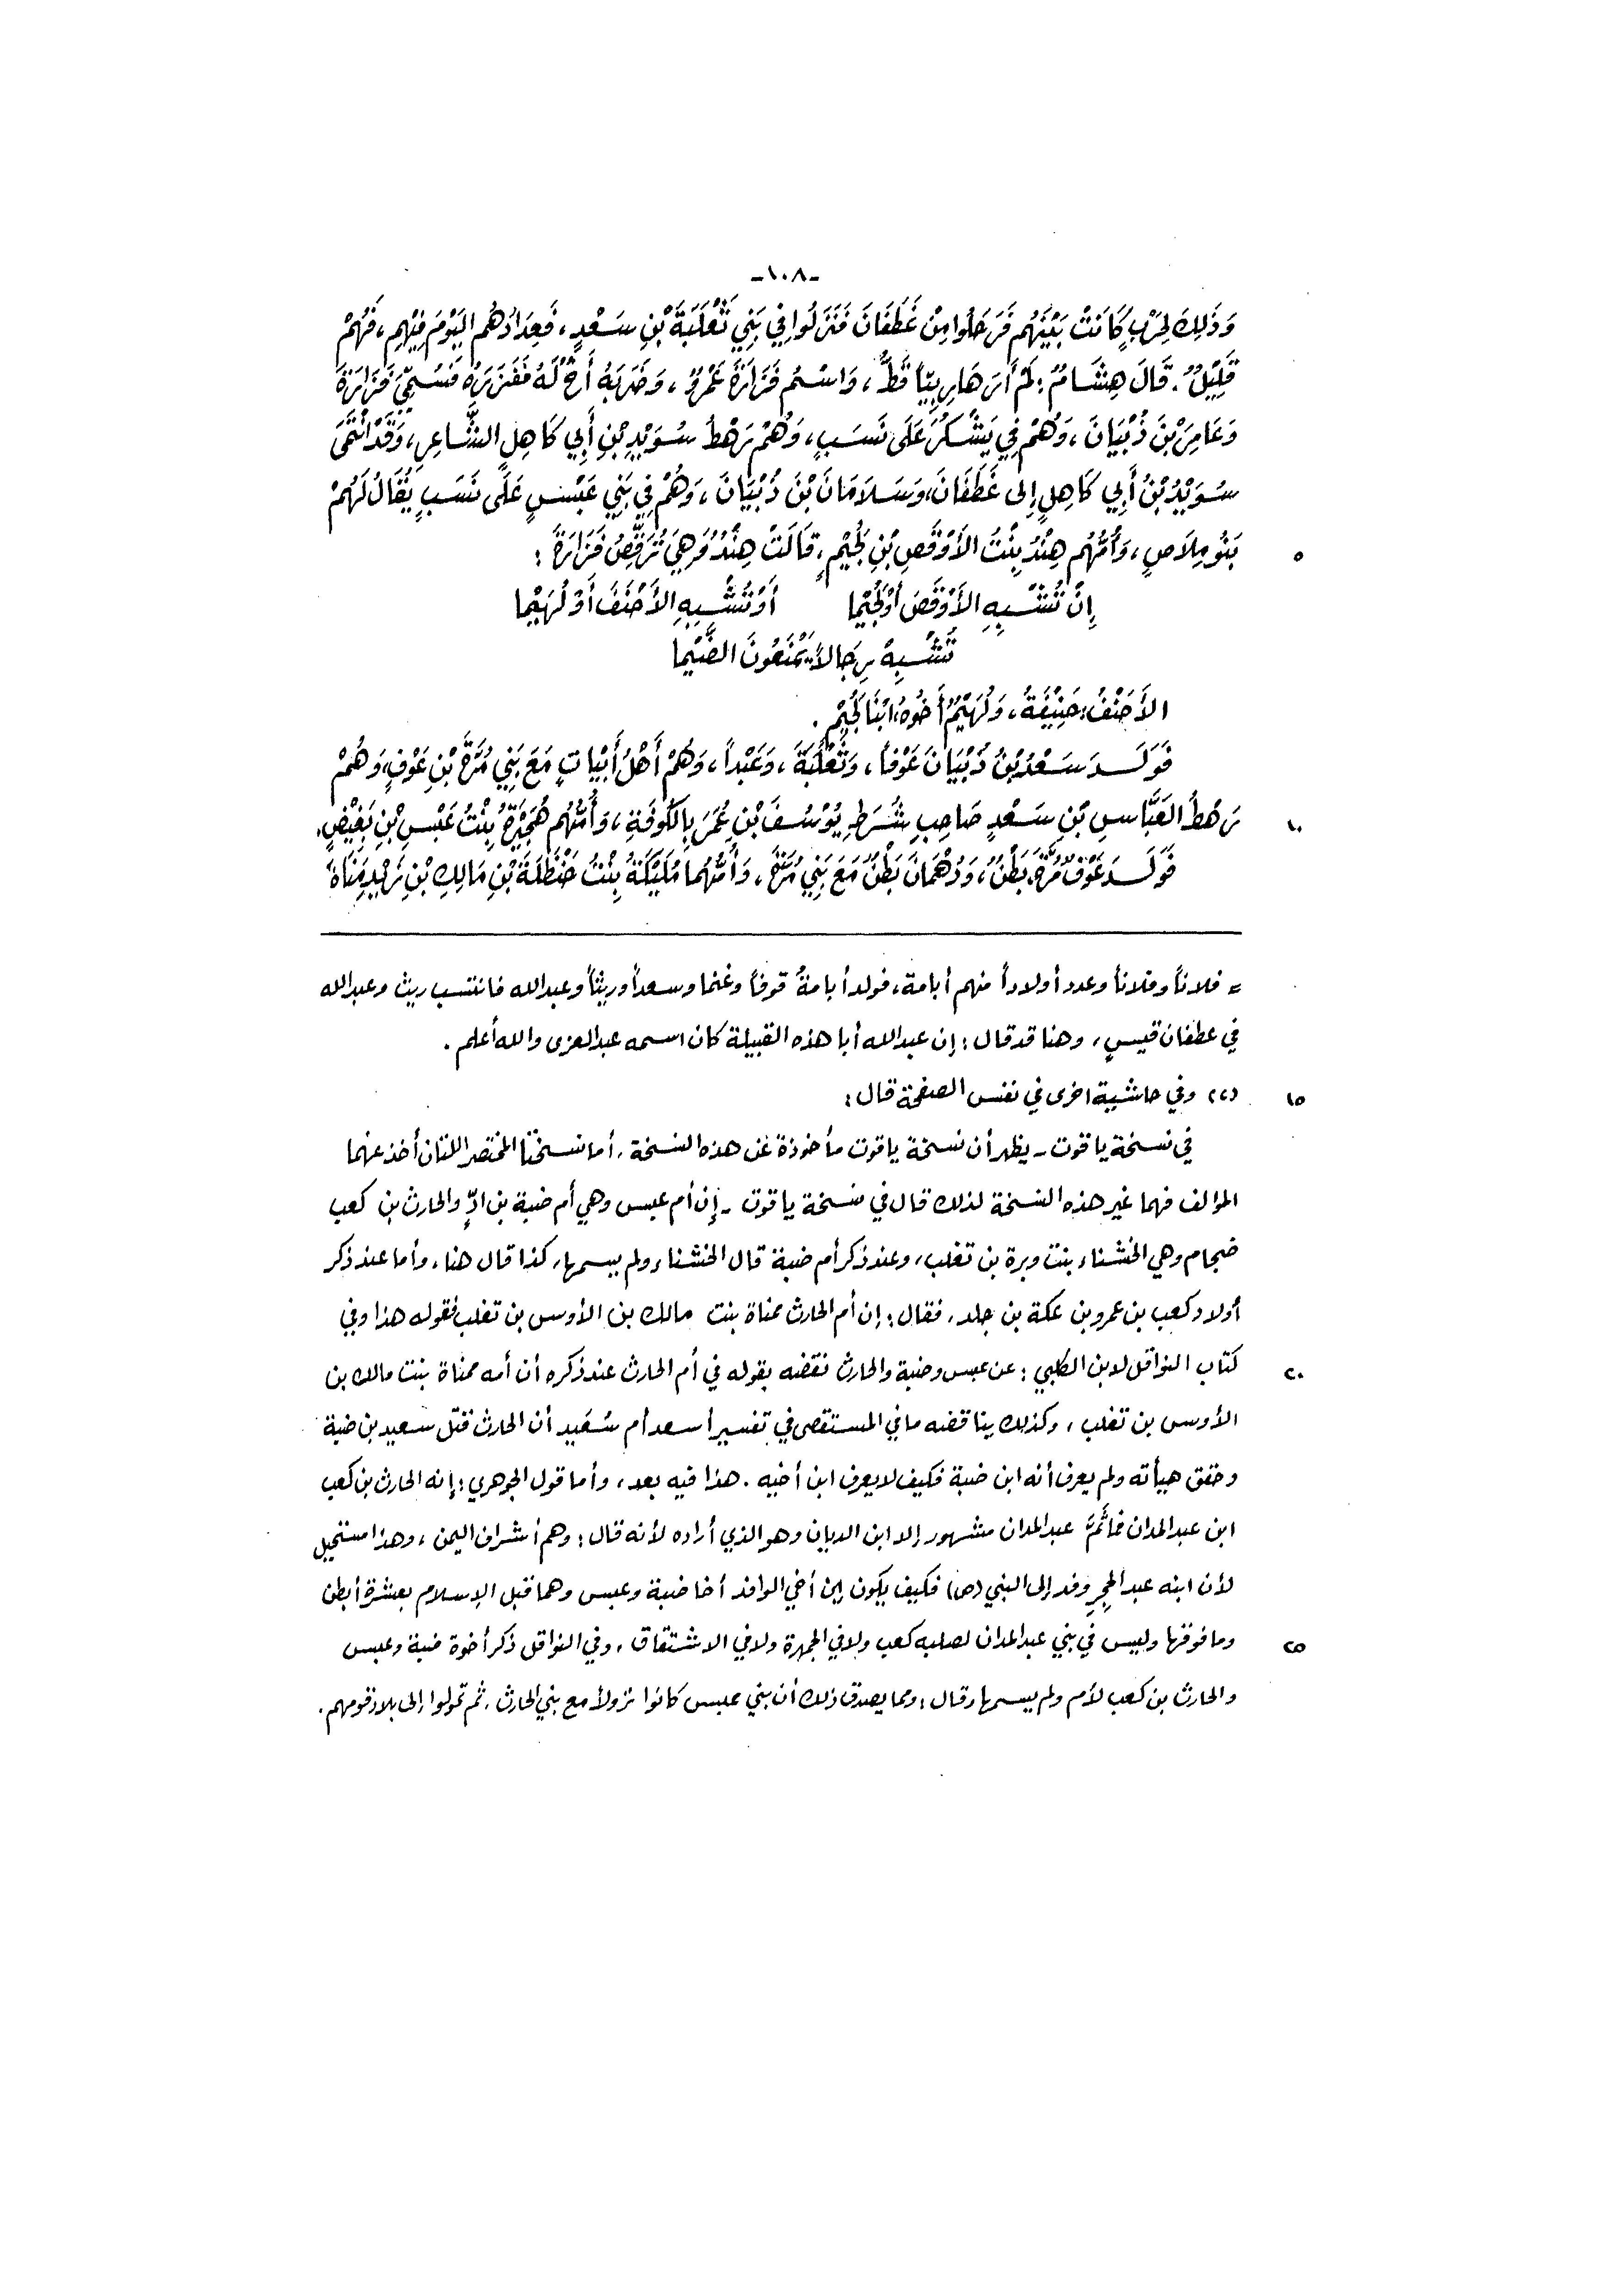 -١٠٨-
وَذَلِكَ لِحَرْبٍ كَانَتْ بَيْنَهُم فَرَحَلُوا مِنْ غَطَفَانَ فَنَزَلُوا فِي بَنِي ثَعْلَبَةَ بْنِ سَعْدٍ، فَعِدَادُهُم اليَوْمَ فِيْهِم، فَهُمْ
قَلِيْلٌ. قَالَ هِشَامٌ: لَمْ أَرَ هَارِبِيّاً قَطُّ، وَاسْمُ فَزَارَةَ عَمْرٌو، وَضَرَبَهُ أَخٌ لَهُ فَفَزَرَهُ فَسُمِّيَ فَزَارَةَ
وَعَامِرَ بْنَ ذُبْيَانَ، وَهُمْ فِي يَشْكُرَ عَلَى نَسَبٍ، وَهُمْ رَهْطُ سُوَيْدِ بْنِ أَبِي كَاهِلٍ الشَّاعِرِ، وَقَدْ انْتَمَى
سُوَيْدُ بْنُ أَبِي كَاهِلٍ إِلى غَطَفَانَ، وَسَلَامَانَ بْنَ ذُبْيَانَ، وَهُمْ فِي بَنِي عَبْسٍ عَلَى نَسَبٍ يُقَالُ لَهُمْ
بَنُو مِلَاصٍ، وَأُمُّهُم هِنْدُ بِنْتُ الأَوْقَصِ بْنِ لُجَيْمٍ، قَالَتْ هِنْدُ وَهِيَ تُرَقِّصُ فَزَارَةَ: ٥
إِنْ تُشْبِهِ الأَوْقَصَ أَوْ لُجَيْما أَوْ تُشْبِهِ الأَحْنَفَ أَوْ لُهَيْما
تُشْبِهْ رِجَالاً يَمْنَعُونَ الضَّيْما
الأَحْنَفُ: حَنِيْفَةُ، وَلُهَيْمٌ أَخُوهُ، ابْنَا لُجَيْمٍ.
فَوَلَدَ سَعْدُ بْنُ ذُبْيَانَ عَوْفاً، وَثَعْلَبَةَ، وَعَبْداً، وَهُمْ أَهْلُ أَبْيَاتٍ مَعَ بَنِي مُرَّةَ بْنِ عَوْفٍ، وَهُمْ
رَهْطُ العَبَّاسِ بْنِ سَعْدٍ صَاحِبِ شُرَطِ يُوْسُفَ بْنِ عُمَرَ بِالكُوفَةِ، وَأُمُّهُم هُجَيْرَةُ بِنْتُ عَبْسِ بْنِ بَغِيْضٍ. ١٠
فَوَلَدَ عَوْفٌ مُرَّةَ، بَطْنٌ، وَدُهْمَانَ بَطْنٌ مَعَ بَنِي مُرَّةَ، وَأُمُّهُما مُلَيْكَةُ بِنْتُ حَنْظَلَةَ بْنِ مَالِكِ بْنِ زَيْدِ مَنَاةَ
= فلاناً وفلاناً وعدد أولاداً منهم أبامة، فولد أبامةُ قوفاً وغنما وسعداً وريثاً وعبدالله فانتسب ريث وعبدالله
في غطفان قيسٍ، وهنا قد قال: إن عبدالله أبا هذه القبيلة كان اسمه عبدالعزى والله أعلم.
(٢) وفي حاشية اخرى في نفس الصفحة قال: ١٥
في نسخة ياقوت - يظهر أن نسخة ياقوت مأخوذة عن هذه النسخة. أما نسختا المختصر اللتان أخذ عنهما
المؤلف فهما غير هذه النسخة لذلك قال في نسخة ياقوت - إن أم عبس وهي أم ضبة بن ادٍّ والحارث بن كعب
ضجام وهي الخشناء بنت وبرة بن تغلب، وعند ذكر أم ضبة قال الخشناء ولم يسمها، كذا قال هنا، وأما عند ذكر
أولاد كعب بن عمرو بن عكة بن جلد، فقال: إن أم الحارث مماة بنت مالك بن الأوس بن تغلب فقوله هذا وفي
كتاب النواقل لابن الكلبي: عن عبس وضبة والحارث نقضه بقوله في أم الحارث عند ذكره أن أمه مماة بنت مالك بن ٢٠
الأوس بن تغلب، وكذلك يناقضه ما في المستقصى في تفسير أسعد أم سُعَيد أن الحارث قتل سعيد بن ضبة
وحقق هيأته ولم يعرف أنه ابن ضبة فكيف لا يعرف ابن أخيه. هذا فيه بعد، وأما قول الجوهري: إنه الحارث بن كعب
ابن عبدالمدان فما ثَمَّ عبدالمدان مشهور إلا ابن الديان وهو الذي أراده لأنه قال: وهم أشراف اليمن، وهذا مستحيل
لأن ابنه عبد الحجرِ وفد إلى النبي (ص) فكيف يكون إبن أخي الوافد أخا ضبة وعبس وهما قبل الإسلام بعشرة أبطن
وما فوقها وليس في بني عبدالمدان لصلبه كعب ولا في الجمهرة ولا في الاشتقاق، وفي النواقل ذكر أخوة ضبة وعبس ٢٥
والحارث بن كعب لأم ولم يسمها وقال: ومما يصدق ذلك أن بني عبس كانوا نزولاً مع بني الحارث، ثم تحولوا إلى بلاد قومهم.